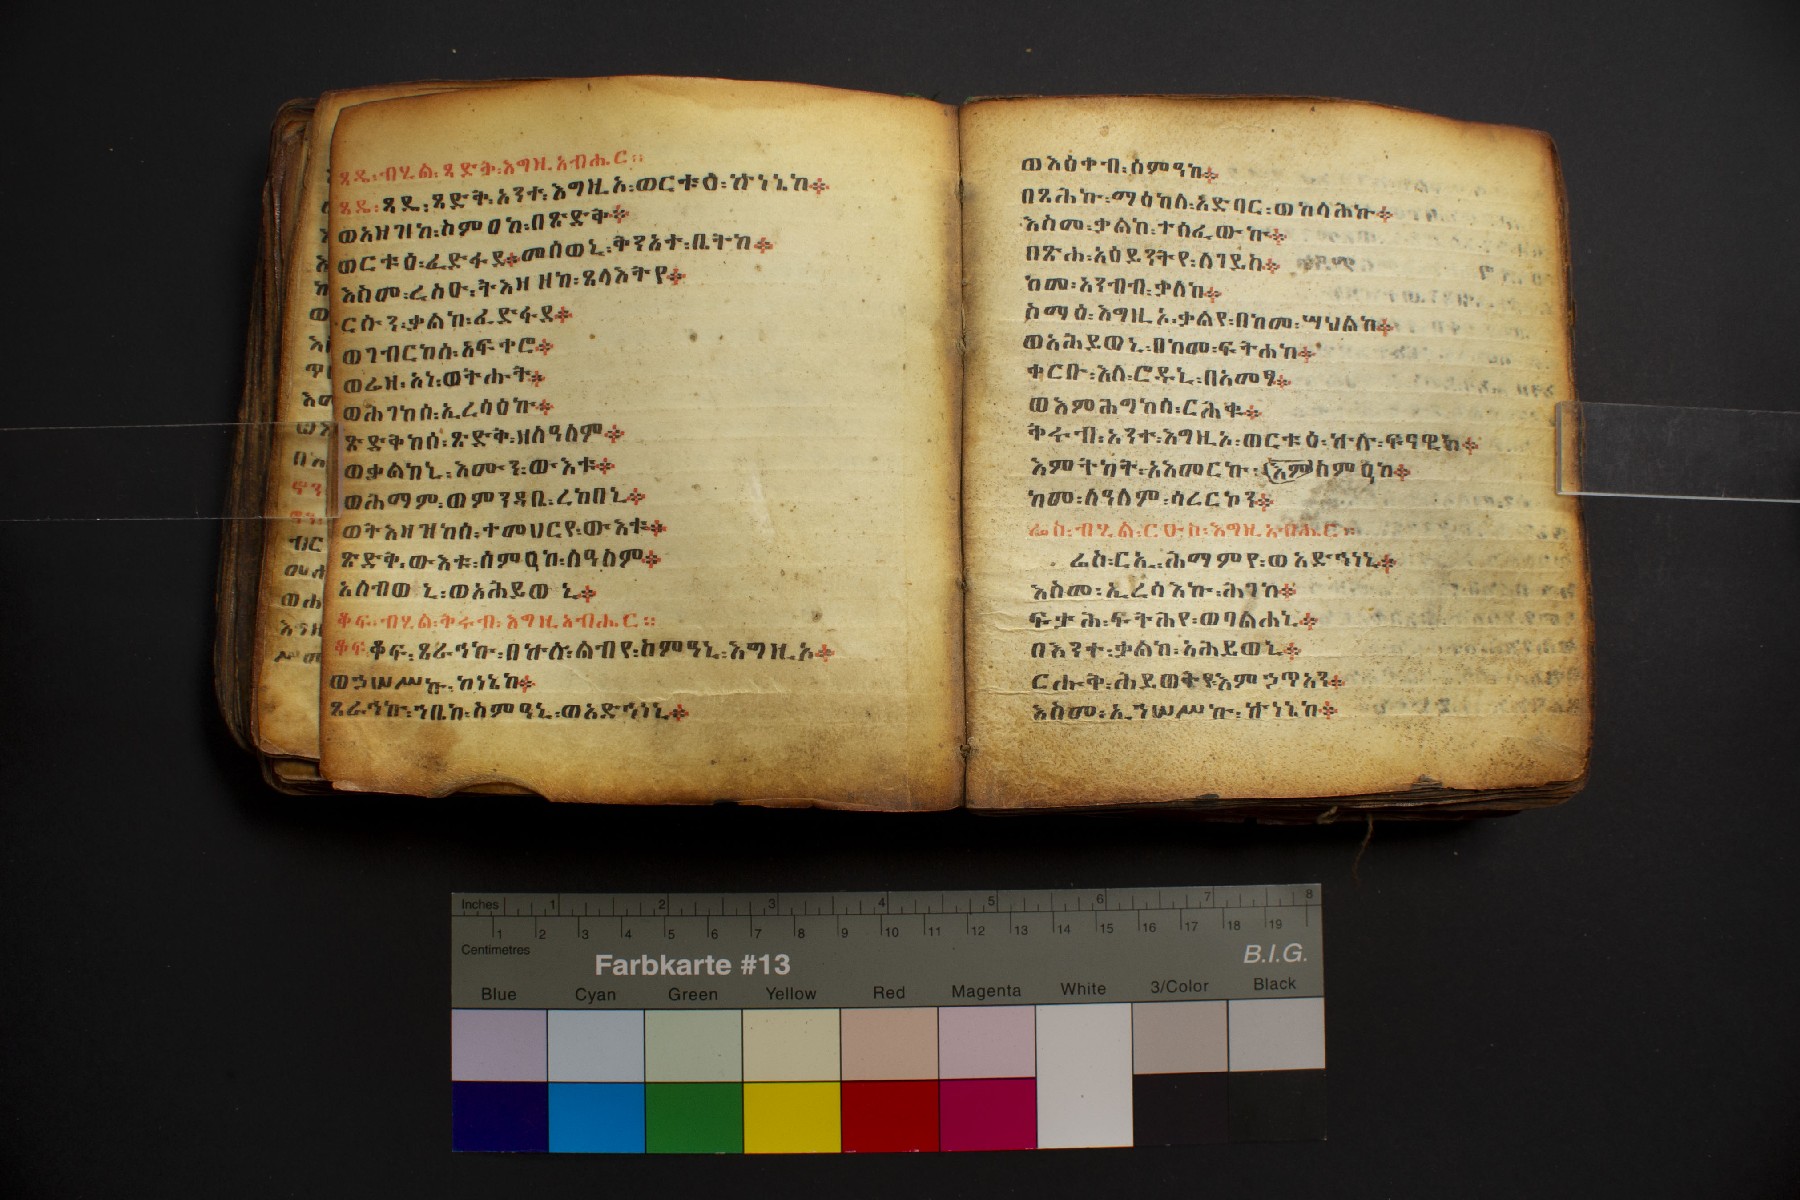 ጻዴ፡ብሂል፡ጻድቅ፡እግዚአብሔር።
ጻዴ፡ጻዴ፡ጻድቅ፡አንተ፡እግዚኦ፡ወርቱዕ፡ኵነኔከ፨
ወአዘዝከ፡ስምዐከ፡በጽድቅ፨
ወርቱዕ፡ፈድፋደ፨መሰወኒ፡ቅንአተ፡ቤትከ፨
እስመ፡ረስዑ፡ትእዛዘከ፡ጸላእትየ፨
ርሱን፡ቃልከ፡ፈድፋደ፨
ወገብርከሰ፡አፍቀሮ፨
ወሬዛ፡አነ፡ወትሑት፨
ወሕገከሰ፡ኢረሳዕኩ፨
ጽድቅከሰ፡ጽድቅ፡ዘለዓለም፨
ወቃልከኒ፡እሙን፡ውእቱ፨
ወሕማም፡ወምንዳቤ፡ረከበኒ፨
ወትእዛዝከሰ፡ተመህርየ፡ውእቱ፨
ጽድቅ፡ውእቱ፡ስምዐከ፡ለዓለም፨
አለብወኒ፡ወአሕይወኒ፨
ቆፍ፡ብሂል፡ቅሩብ፡እግዚአብሔር።
ቆፍ፡ቆፍ፡ጸራኅኩ፡በኵሉ፡ልብየ፡ስምዓኒ፡እግዚኦ፨
ወኃሠሥኩ፡ኵነኔከ፨
ጸራኅኩ፡ኀቤከ፡ስምዓኒ፡ወአድኅነኒ፨
ወእዕቀብ፡ስምዓከ፨
በጻሕኩ፡ማዕከለ፡አድባር፡ወከላሕኩ፨
እስመ፡ቃልከ፡ተሰፈውኩ፨
በጽሐ፡አዕይንትየ፡ለገይስ፨
ከመ፡አንብብ፡ቃለከ፨
ስማዕ፡እግዚኦ፡ቃልየ፡በከመ፡ሣህልከ፨
ወአሕይወኒ፡በከመ፡ፍትሐከ፨
ቀርቡ፡እለ፡ሮዱኒ፡በአመፃ፨
ወእምሕግከሰ፡ርሕቁ፨
ቅሩብ፡አንተ፡እግዚኦ፡ወርቱዕ፡ኵሉ፡ፍናዊከ፨
እምትካት፡አእመርኩ፡እምስምዐከ፨
ከመ፡ለዓለም፡ሳረርኮን፨
ሬስ፡ብሂል፡ርዑስ፡እግዚአብሔር።
ሬስ፡ርኢ፡ሕማምየ፡ወአድኅነኒ፨
እስመ፡ኢረሳእኩ፡ሕገከ፨
ፍታሕ፡ፍትሕየ፡ወባልሐኒ፨
በእንተ፡ቃልከ፡አሕይወኒ፨
ርሑቅ፡ሕይወት፡እምኃጥአን፨
እስመ፡ኢኀሠሥኩ፡ኵነኔከ፨
Inches 1 2 3 4 5 6 7 8
1 2 3 4 5 6 7 8 9 10 11 12 13 14 15 16 17 18 19
Centimetres
Farbkarte #13
B.I.G.
Blue Cyan Green Yellow Red Magenta White 3/Color Black